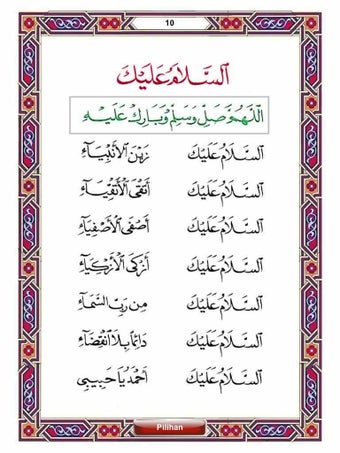 10
السَّلَامُ عَلَيْكَ
اللَّهُمَّ صَلِّ وَسَلِّمْ وَبَارِكْ عَلَيْهِ
السَّلَامُ عَلَيْكَ زَيْنَ الْأَنْبِيَاءِ
السَّلَامُ عَلَيْكَ أَتْقَى الْأَتْقِيَاءِ
السَّلَامُ عَلَيْكَ أَصْفَى الْأَصْفِيَاءِ
السَّلَامُ عَلَيْكَ أَزْكَى الْأَزْكِيَاءِ
السَّلَامُ عَلَيْكَ مِنْ رَبِّ السَّمَاءِ
السَّلَامُ عَلَيْكَ دَائِمًا بِلَا انْقِضَاءِ
السَّلَامُ عَلَيْكَ أَحْمَدُ يَا حَبِيبِي
Pilihan